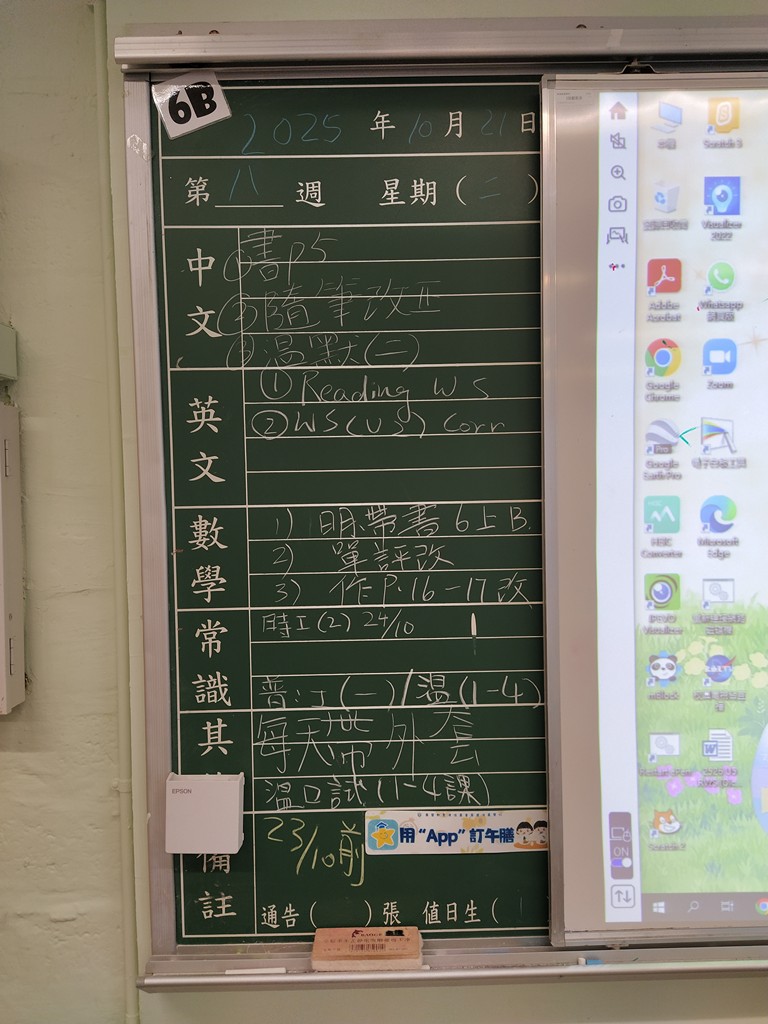 6B
2025 年 10 月 21 日
第 八 週 星期 ( 二 )
中文
① 書 P5
② 隨筆改正
③ 温默(二)
英文
① Reading WS
② WS(U3) Corr
數學
1) 明帶書 6上B.
2) 單評改
3) 作 P.16-17 改
常識
時工(2) 24/10
普:工(一)/温(1-4)
其
每天帶外套
温口試(1-4課)
EPSON
備註
23/10前
用“App”訂午膳
通告( )張 值日生(
Scratch 3
Visualizer
Adobe Acrobat
Whatsapp
Google Chrome
Zoom
Google Earth Pro
電子白板工具
Converter
Microsoft Edge
Visualizer
mBlock
ON
Scratch 2